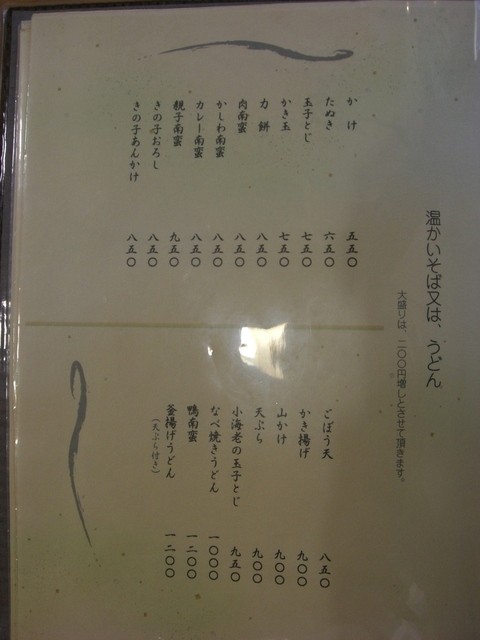 温かいそば又は、うどん
大盛りは、二〇〇円増しとさせて頂きます。
かけ 五五〇
たぬき 六五〇
玉子とじ 七五〇
かき玉 七五〇
力餅 八五〇
肉南蛮 八五〇
かしわ南蛮 八五〇
カレー南蛮 八五〇
親子南蛮 九五〇
きの子おろし 八五〇
きの子あんかけ 八五〇
ごぼう天 八五〇
かき揚げ 九〇〇
山かけ 九〇〇
天ぷら 九〇〇
小海老の玉子とじ 九五〇
なべ焼きうどん 一〇〇〇
鴨南蛮 一二〇〇
釜揚げうどん 一二〇〇
(天ぷら付き)